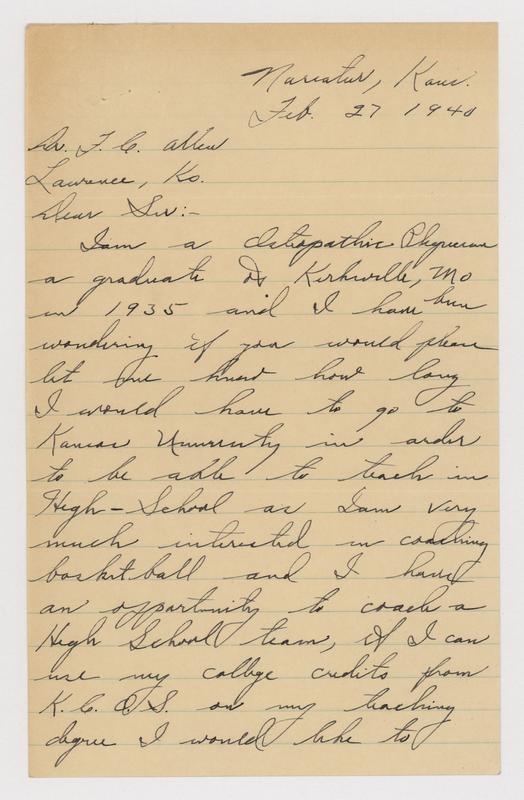 Norcatur, Kans.
Feb. 27 1940
Dr. F. C. Allen
Lawrence, Ks.
Dear Sir:-
I am a Osteopathic Physician
a graduate of Kirksville, Mo
in 1935 and I have been
wondering if you would please
let me know how long
I would have to go to
Kansas University in order
to be able to teach in
High-School as I am very
much interested in coaching
basketball and I have
an opportunity to coach a
High School team, if I can
use my college credits from
K. C. O. S. on my teaching
degree I would like to